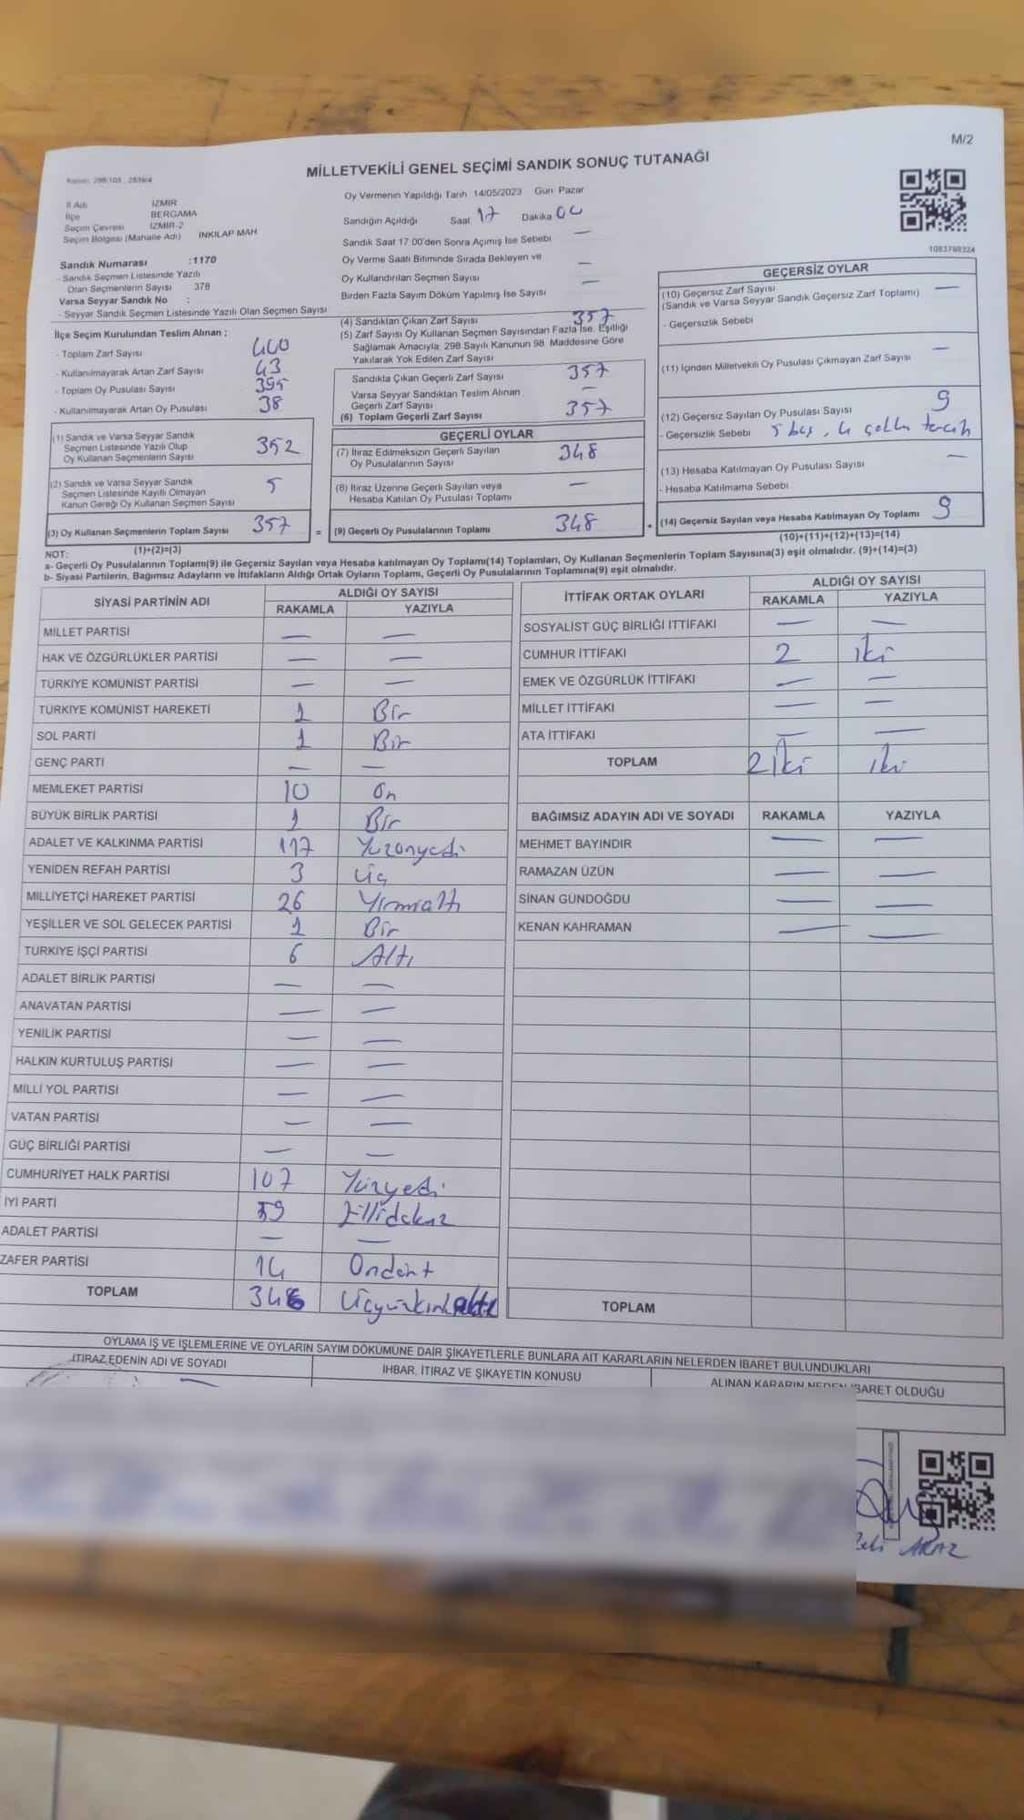 M/2
MİLLETVEKİLİ GENEL SEÇİMİ SANDIK SONUÇ TUTANAĞI
İl Adı İZMİR
İlçe BERGAMA
Seçim Çevresi İZMİR-2
Seçim Bölgesi (Mahalle Adı) INKILAP MAH
Sandık Numarası :1170
- Sandık Seçmen Listesinde Yazılı
Olan Seçmenlerin Sayısı 378
Varsa Seyyar Sandık No :
- Seyyar Sandık Seçmen Listesinde Yazılı Olan Seçmen Sayısı
Oy Vermenin Yapıldığı Tarih 14/05/2023 Gün Pazar
Sandığın Açıldığı Saat 17 Dakika 00
Sandık Saat 17:00'den Sonra Açımış İse Sebebi —
Oy Verme Saati Bitiminde Sırada Bekleyen ve
Oy Kullandırılan Seçmen Sayısı —
Birden Fazla Sayım Döküm Yapılmış İse Sayısı —
1083788324
İlçe Seçim Kurulundan Teslim Alınan :
- Toplam Zarf Sayısı 400
- Kullanılmayarak Artan Zarf Sayısı 43
- Toplam Oy Pusulası Sayısı 395
- Kullanılmayarak Artan Oy Pusulası 38
(1) Sandık ve Varsa Seyyar Sandık
Seçmen Listesinde Yazılı Olup
Oy Kullanan Seçmenlerin Sayısı 352
(2) Sandık ve Varsa Seyyar Sandık
Seçmen Listesinde Kayıtlı Olmayan
Kanun Gereği Oy Kullanan Seçmen Sayısı 5
(3) Oy Kullanan Seçmenlerin Toplam Sayısı 357 =
(1)+(2)=(3)
(4) Sandıktan Çıkan Zarf Sayısı 357
(5) Zarf Sayısı Oy Kullanan Seçmen Sayısından Fazla İse, Eşitliği
Sağlamak Amacıyla, 298 Sayılı Kanunun 98. Maddesine Göre
Yakılarak Yok Edilen Zarf Sayısı
Sandıkta Çıkan Geçerli Zarf Sayısı 357
Varsa Seyyar Sandıktan Teslim Alınan
Geçerli Zarf Sayısı —
(6) Toplam Geçerli Zarf Sayısı 357
GEÇERLİ OYLAR
(7) İtiraz Edilmeksizin Geçerli Sayılan
Oy Pusulalarının Sayısı 348
(8) İtiraz Üzerine Geçerli Sayılan veya
Hesaba Katılan Oy Pusulası Toplamı —
(9) Geçerli Oy Pusulalarının Toplamı 348
GEÇERSİZ OYLAR
(10) Geçersiz Zarf Sayısı —
(Sandık ve Varsa Seyyar Sandık Geçersiz Zarf Toplamı)
- Geçersizlik Sebebi
(11) İçinden Milletvekili Oy Pusulası Çıkmayan Zarf Sayısı —
(12) Geçersiz Sayılan Oy Pusulası Sayısı 9
- Geçersizlik Sebebi 5 boş, 4 çoklu tercih
(13) Hesaba Katılmayan Oy Pusulası Sayısı —
- Hesaba Katılmama Sebebi
(14) Geçersiz Sayılan veya Hesaba Katılmayan Oy Toplamı 9
(10)+(11)+(12)+(13)=(14)
NOT:
a- Geçerli Oy Pusulalarının Toplamı(9) ile Geçersiz Sayılan veya Hesaba katılmayan Oy Toplamı(14) Toplamları, Oy Kullanan Seçmenlerin Toplam Sayısına(3) eşit olmalıdır. (9)+(14)=(3)
b- Siyasi Partilerin, Bağımsız Adayların ve İttifakların Aldığı Ortak Oyların Toplamı, Geçerli Oy Pusulalarının Toplamına(9) eşit olmalıdır.
SİYASİ PARTİNİN ADI ALDIĞI OY SAYISI
RAKAMLA YAZIYLA
MİLLET PARTİSİ — —
HAK VE ÖZGÜRLÜKLER PARTİSİ — —
TÜRKİYE KOMÜNİST PARTİSİ — —
TÜRKİYE KOMÜNİST HAREKETİ 1 Bir
SOL PARTİ 1 Bir
GENÇ PARTİ — —
MEMLEKET PARTİSİ 10 On
BÜYÜK BİRLİK PARTİSİ 1 Bir
ADALET VE KALKINMA PARTİSİ 117 Yüzonyedi
YENİDEN REFAH PARTİSİ 3 Üç
MİLLİYETÇİ HAREKET PARTİSİ 26 Yirmialtı
YEŞİLLER VE SOL GELECEK PARTİSİ 1 Bir
TÜRKİYE İŞÇİ PARTİSİ 6 Altı
ADALET BİRLİK PARTİSİ — —
ANAVATAN PARTİSİ — —
YENİLİK PARTİSİ — —
HALKIN KURTULUŞ PARTİSİ — —
MİLLİ YOL PARTİSİ — —
VATAN PARTİSİ — —
GÜÇ BİRLİĞİ PARTİSİ — —
CUMHURİYET HALK PARTİSİ 107 Yüzyedi
İYİ PARTİ 59 Ellidokuz
ADALET PARTİSİ — —
ZAFER PARTİSİ 14 Ondört
TOPLAM 346 Üçyüzkırkaltı
İTTİFAK ORTAK OYLARI ALDIĞI OY SAYISI
RAKAMLA YAZIYLA
SOSYALİST GÜÇ BİRLİĞİ İTTİFAKI — —
CUMHUR İTTİFAKI 2 iki
EMEK VE ÖZGÜRLÜK İTTİFAKI — —
MİLLET İTTİFAKI — —
ATA İTTİFAKI — —
TOPLAM 2 İki iki
BAĞIMSIZ ADAYIN ADI VE SOYADI RAKAMLA YAZIYLA
MEHMET BAYINDIR — —
RAMAZAN ÜZÜN — —
SİNAN GÜNDOĞDU — —
KENAN KAHRAMAN — —
TOPLAM
OYLAMA İŞ VE İŞLEMLERİNE VE OYLARIN SAYIM DÖKÜMÜNE DAİR ŞİKAYETLERLE BUNLARA AİT KARARLARIN NELERDEN İBARET BULUNDUKLARI
İTİRAZ EDENİN ADI VE SOYADI İHBAR, İTİRAZ VE ŞİKAYETİN KONUSU ALINAN KARARIN NEDEN İBARET OLDUĞU